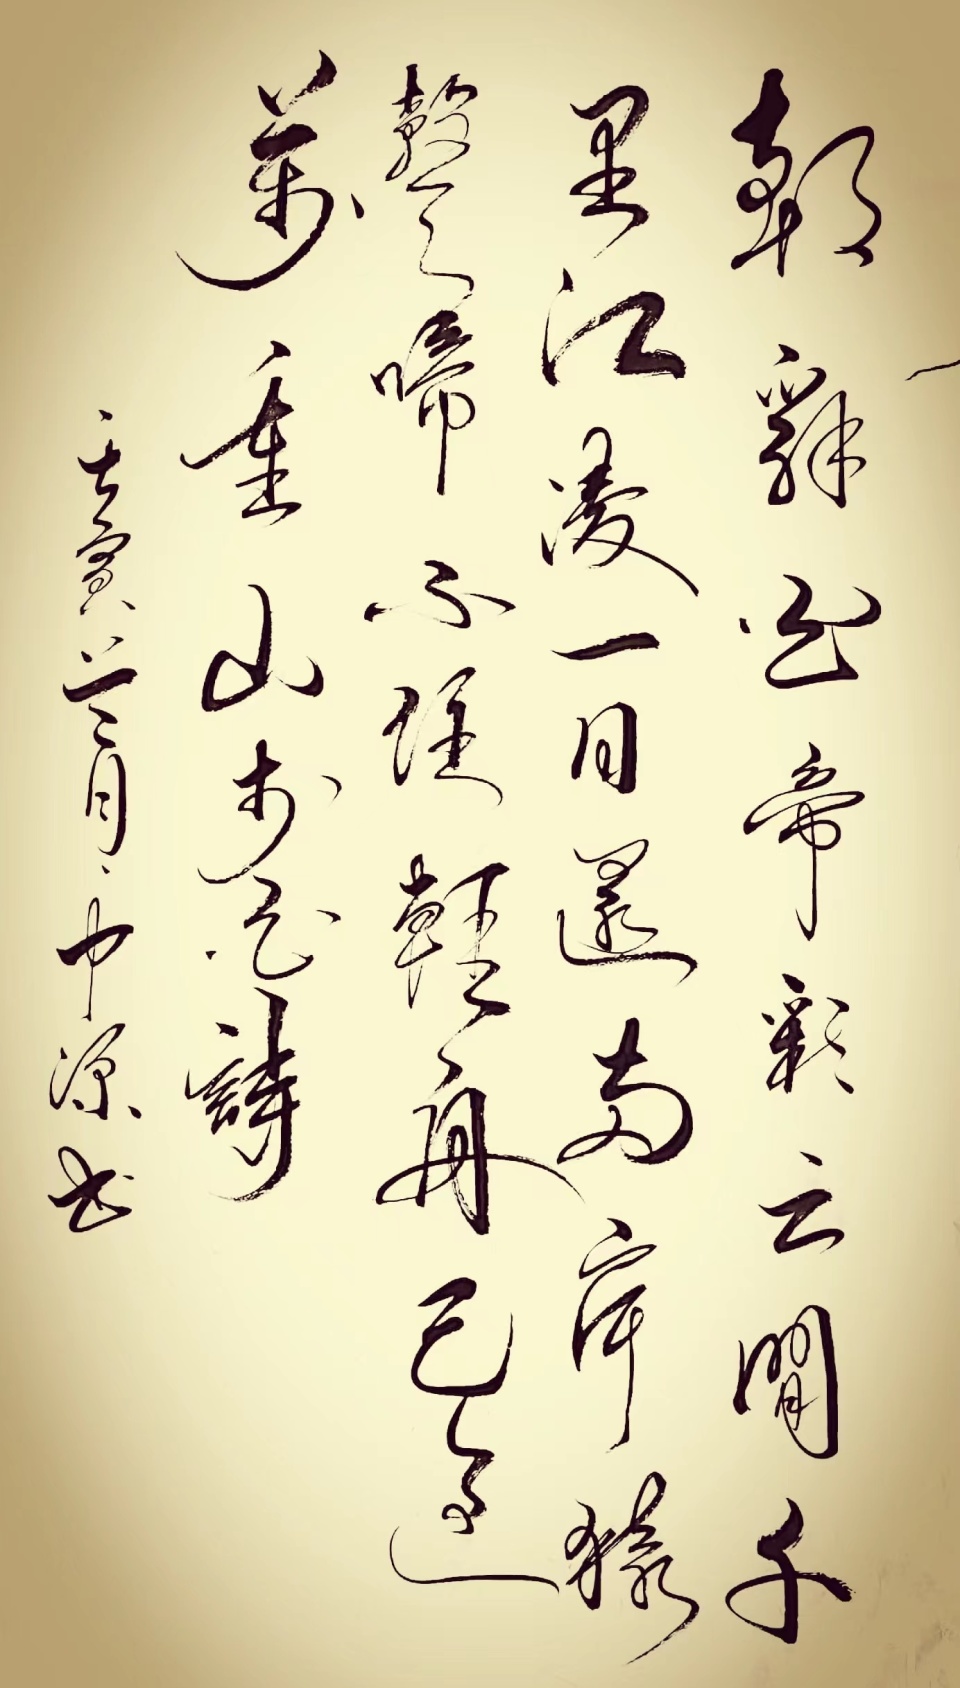 朝辭白帝彩云間千
里江凌一日還兩岸猿
聲啼不住輕舟已過
萬重山李白詩
壬寅兰月中源书